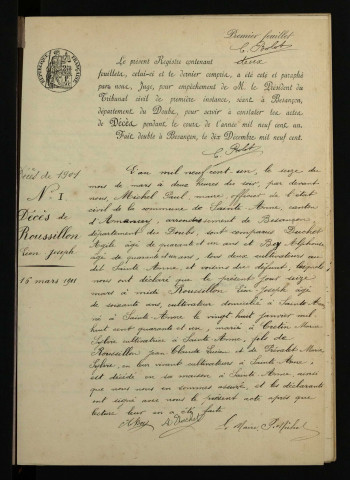 Premier feuillet
C. Bolot
RÉPUBLIQUE FRANÇAISE
Le présent Registre contenant deux
feuillets, celui-ci et le dernier compris, a été coté et paraphé
par nous, Juge, pour empêchement de M. le Président du
Tribunal civil de première instance, séant à Besançon,
département du Doubs, pour servir à constater les actes
de Décès pendant le cours de l'année mil neuf cent un.
Fait double à Besançon, le dix Décembre mil neuf cent.
C. Bolot
Décès de 1901
N° 1
Décès de
Roussillon
Léon Joseph
16 mars 1901
L'an mil neuf cent un, le seize du
mois de mars à deux heures du soir, par devant
nous, Michel Paul, maire officier de l'état
civil de la commune de Sainte Anne, canton
d'Amancey, arrondissement de Besançon,
département du Doubs, sont comparus Duchet
âgé de quarante et un ans et Boy Alphonse
âgé de quarante ans, tous deux cultivateurs au
dit Sainte Anne, et voisins du défunt, lesquels
nous ont déclaré que le présent jour seize
mars à midi, Roussillon Léon Joseph âgé
de soixante ans, cultivateur domicilié à Sainte Anne
né à Sainte Anne le vingt huit janvier mil
huit cent quarante et un, marié à Cretin Marie
cultivatrice à Sainte Anne, fils de
Roussillon Jean Claude et de Marie
en leur vivant cultivateurs à Sainte Anne,
est décédé en sa maison à Sainte Anne ainsi
que nous nous en sommes assuré, et les déclarants
ont signé avec nous le présent acte après que
lecture leur en a été faite.
A. Boy A. Duchet Le Maire, P. Michel